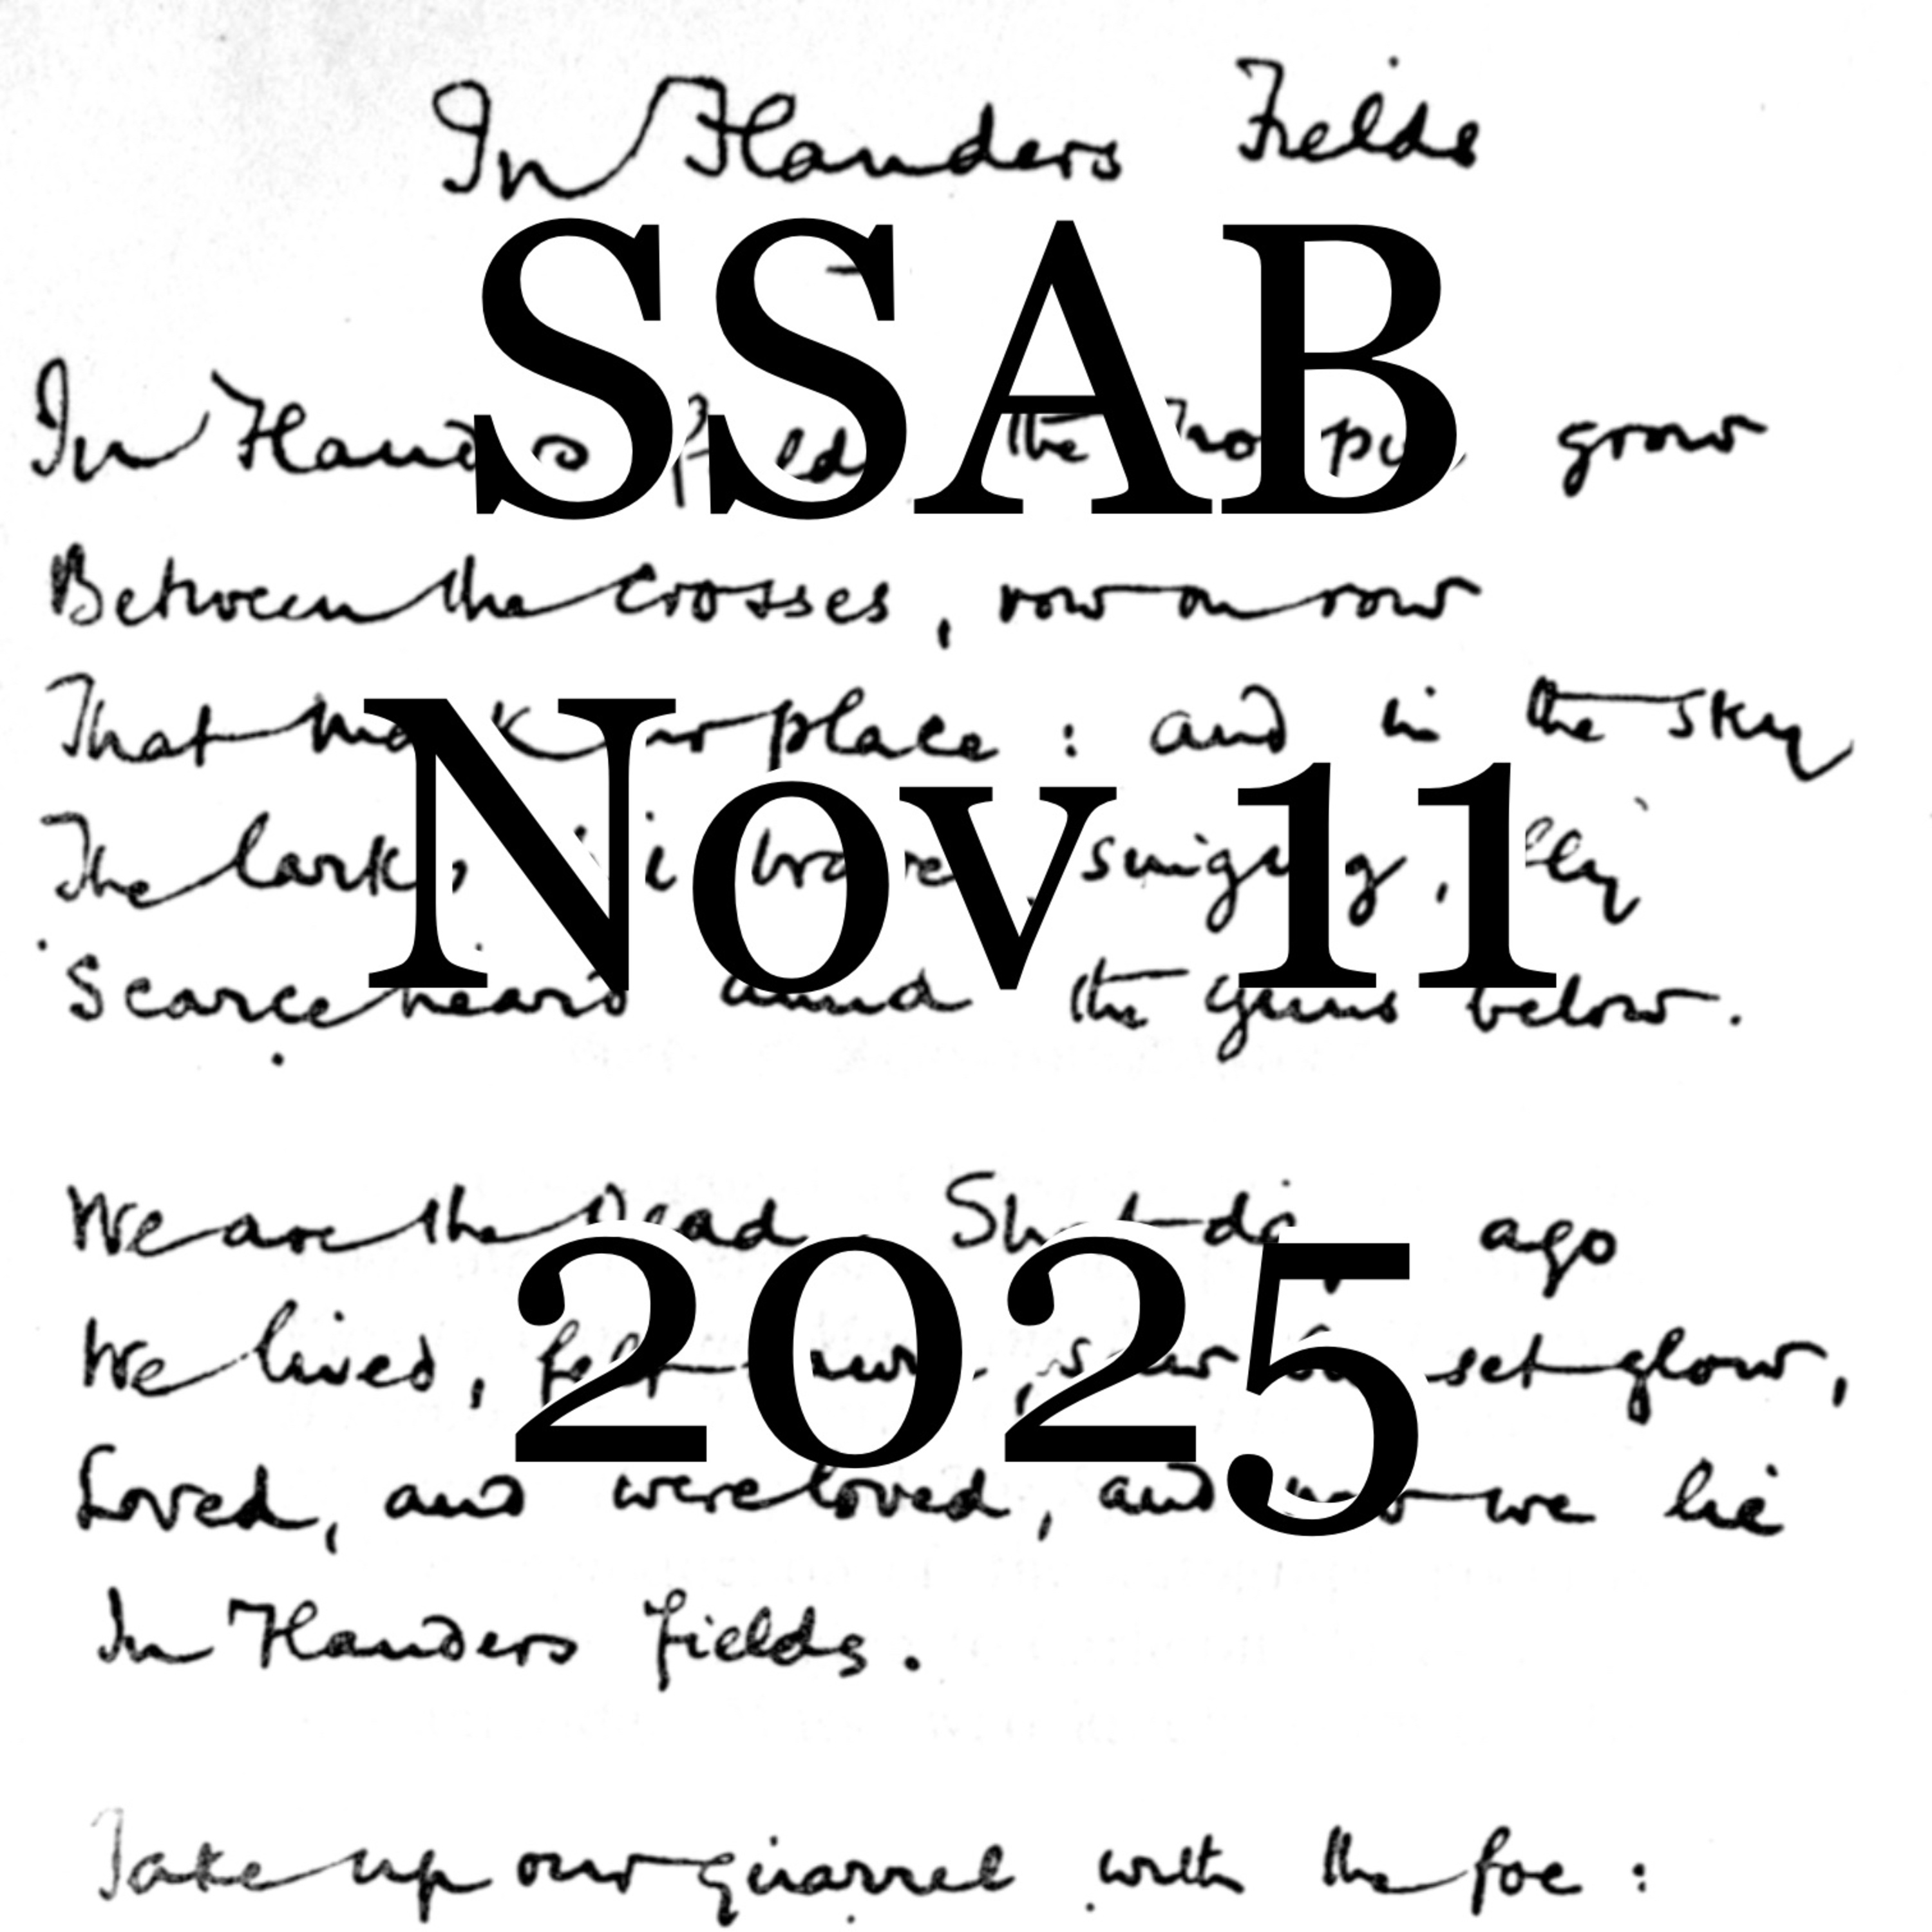 In Flanders Fields
SSAB
In Flanders fields the poppies grow
Between the crosses, row on row
That mark our place : and in the sky
Nov 11
The larks, still bravely singing, fly
Scarce heard amid the guns below.
We are the Dead. Short days ago
2025
We lived, felt dawn, saw sunset glow,
Loved, and were loved, and now we lie
In Flanders fields.
Take up our quarrel with the foe :